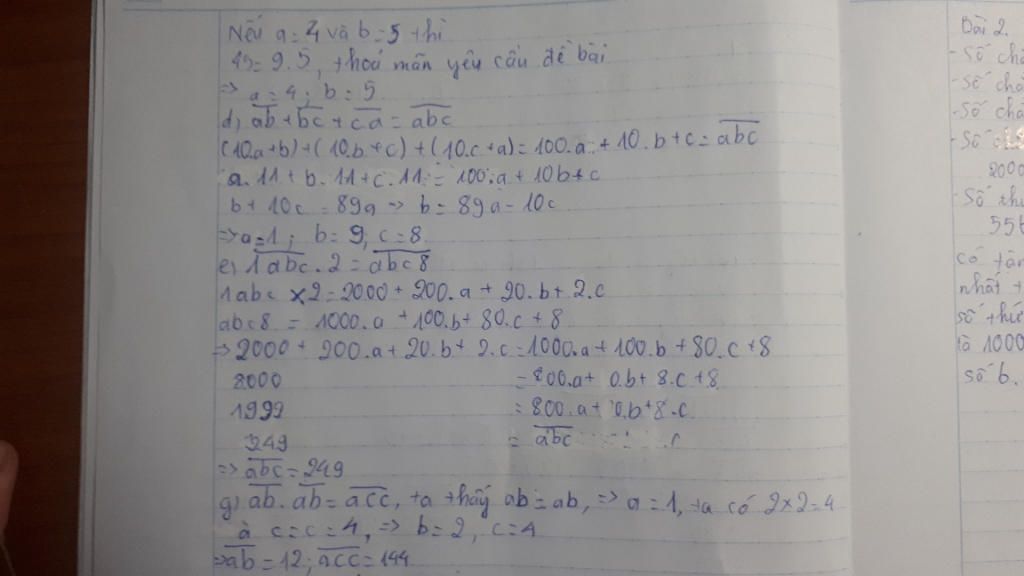 Nếu a = 4 và b = 5 thì
45 = 9.5, thoả mãn yêu cầu đề bài
=> a = 4; b = 5
d, ab + bc + ca = abc
(10.a+b)+(10.b+c)+(10.c+a)=100.a+10.b+c=abc
a.11+b.11+c.11=100.a+10b+c
b+10c = 89a -> b = 89a-10c
=> a=1; b=9, c=8
e, 1abc.2 = abc8
1abc x2=2000+200.a+20.b+2.c
abc8 = 1000.a+100.b+80.c+8
=> 2000+200.a+20.b+2.c=1000.a+100.b+80.c+8
2000 = 800.a+ 0.b+8.c+8
1992 = 800.a+ 0.b+8.c
249 = abc
=> abc=249
g, ab.ab=acc, ta thấy ab=ab, => a=1, ta có 2x2=4
à c=c=4, => b=2, c=4
=> ab=12; acc=144
Bài 2.
- Số
- Số
- Số
- Số
2000
- Số
556
có
nhất
số
là 1000
số 6.